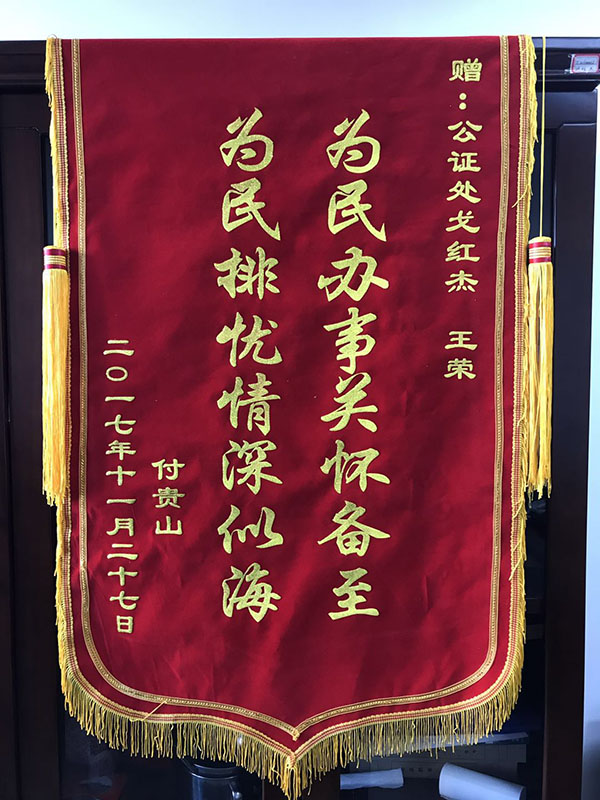 赠：公证处戈红杰 王荣
为民办事关怀备至
为民排忧情深似海
付贵山
二〇一七年十一月二十七日